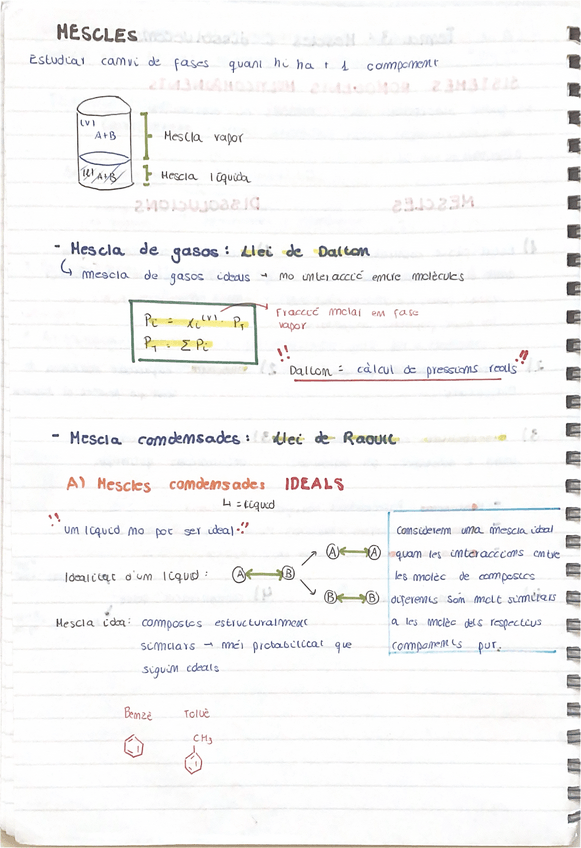 MESCLES
Estudiar canvi de fases quan hi ha + 1 component
(V)
A+B
Mescla vapor
(l) A+B
Mescla líquida
- Mescla de gasos: Llei de Dalton
mescla de gasos ideals → no interacció entre molècules
Pi = xi (V) · PT
Fracció molar en fase
vapor
PT = ΣPi
!! Dalton = càlcul de pressions reals !!
- Mescla condensades: Llei de Raoult
A) Mescles condensades IDEALS
↳ = líquid
!! un líquid no pot ser ideal !!
Idealitat d'un líquid:
A B
A A
B B
Considerem una mescla ideal
quan les interaccions entre
les molèc de compostos
diferents són molt similars
a les molèc dels respectius
components purs.
Mescla ideal: compostos estructuralment
similars → més probabilitat que
siguin ideals
Benzè
Toluè
CH3